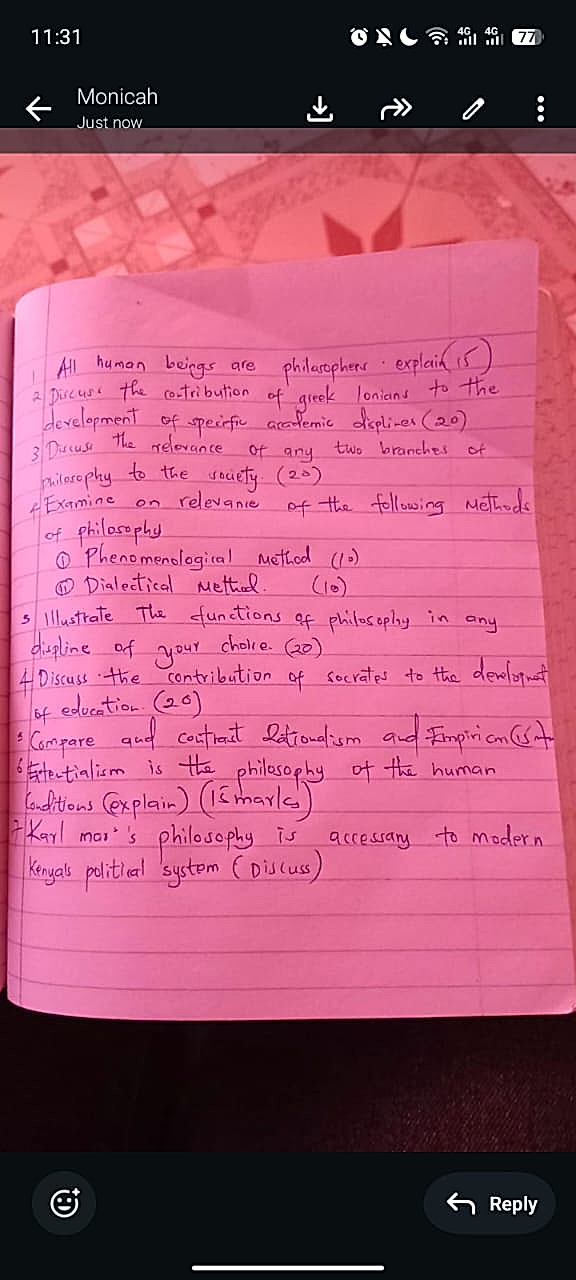 11:31
4G 4G 77
Monicah
Just now
1 All human beings are philosophers. explain (15)
2 Discuss the contribution of greek Ionians to the
development of specific academic displines (20)
3 Discuss the relevance of any two branches of
philosophy to the society. (20)
4 Examine on relevance of the following Methods
of philosophy
(i) Phenomenological Method (10)
(ii) Dialectical Method. (10)
5 Illustrate The functions of philosophy in any
displine of your choice. (20)
4 Discuss the contribution of socrates to the
of education. (20)
5 Compare and contrast Rationalism and (15
6 is the philosophy of the human
Conditions (explain) (15 marks)
7 Karl philosophy is accessary to modern
Kenya's political system (Discuss)
Reply